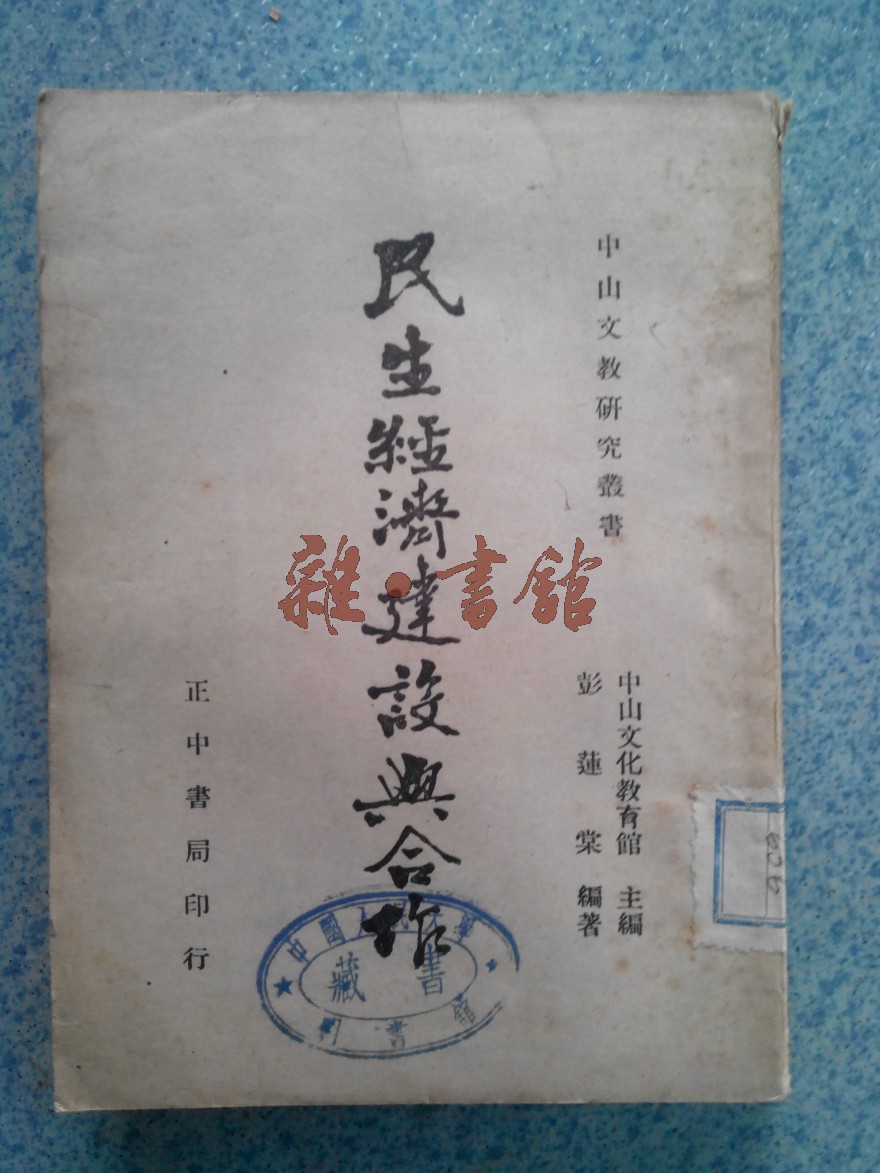 中山文教研究叢書
中山文化教育館 主編
彭蓮棠 編著
民生經濟建設與合作
正中書局印行
雜·書館
中國人民大學
藏書
圖書館